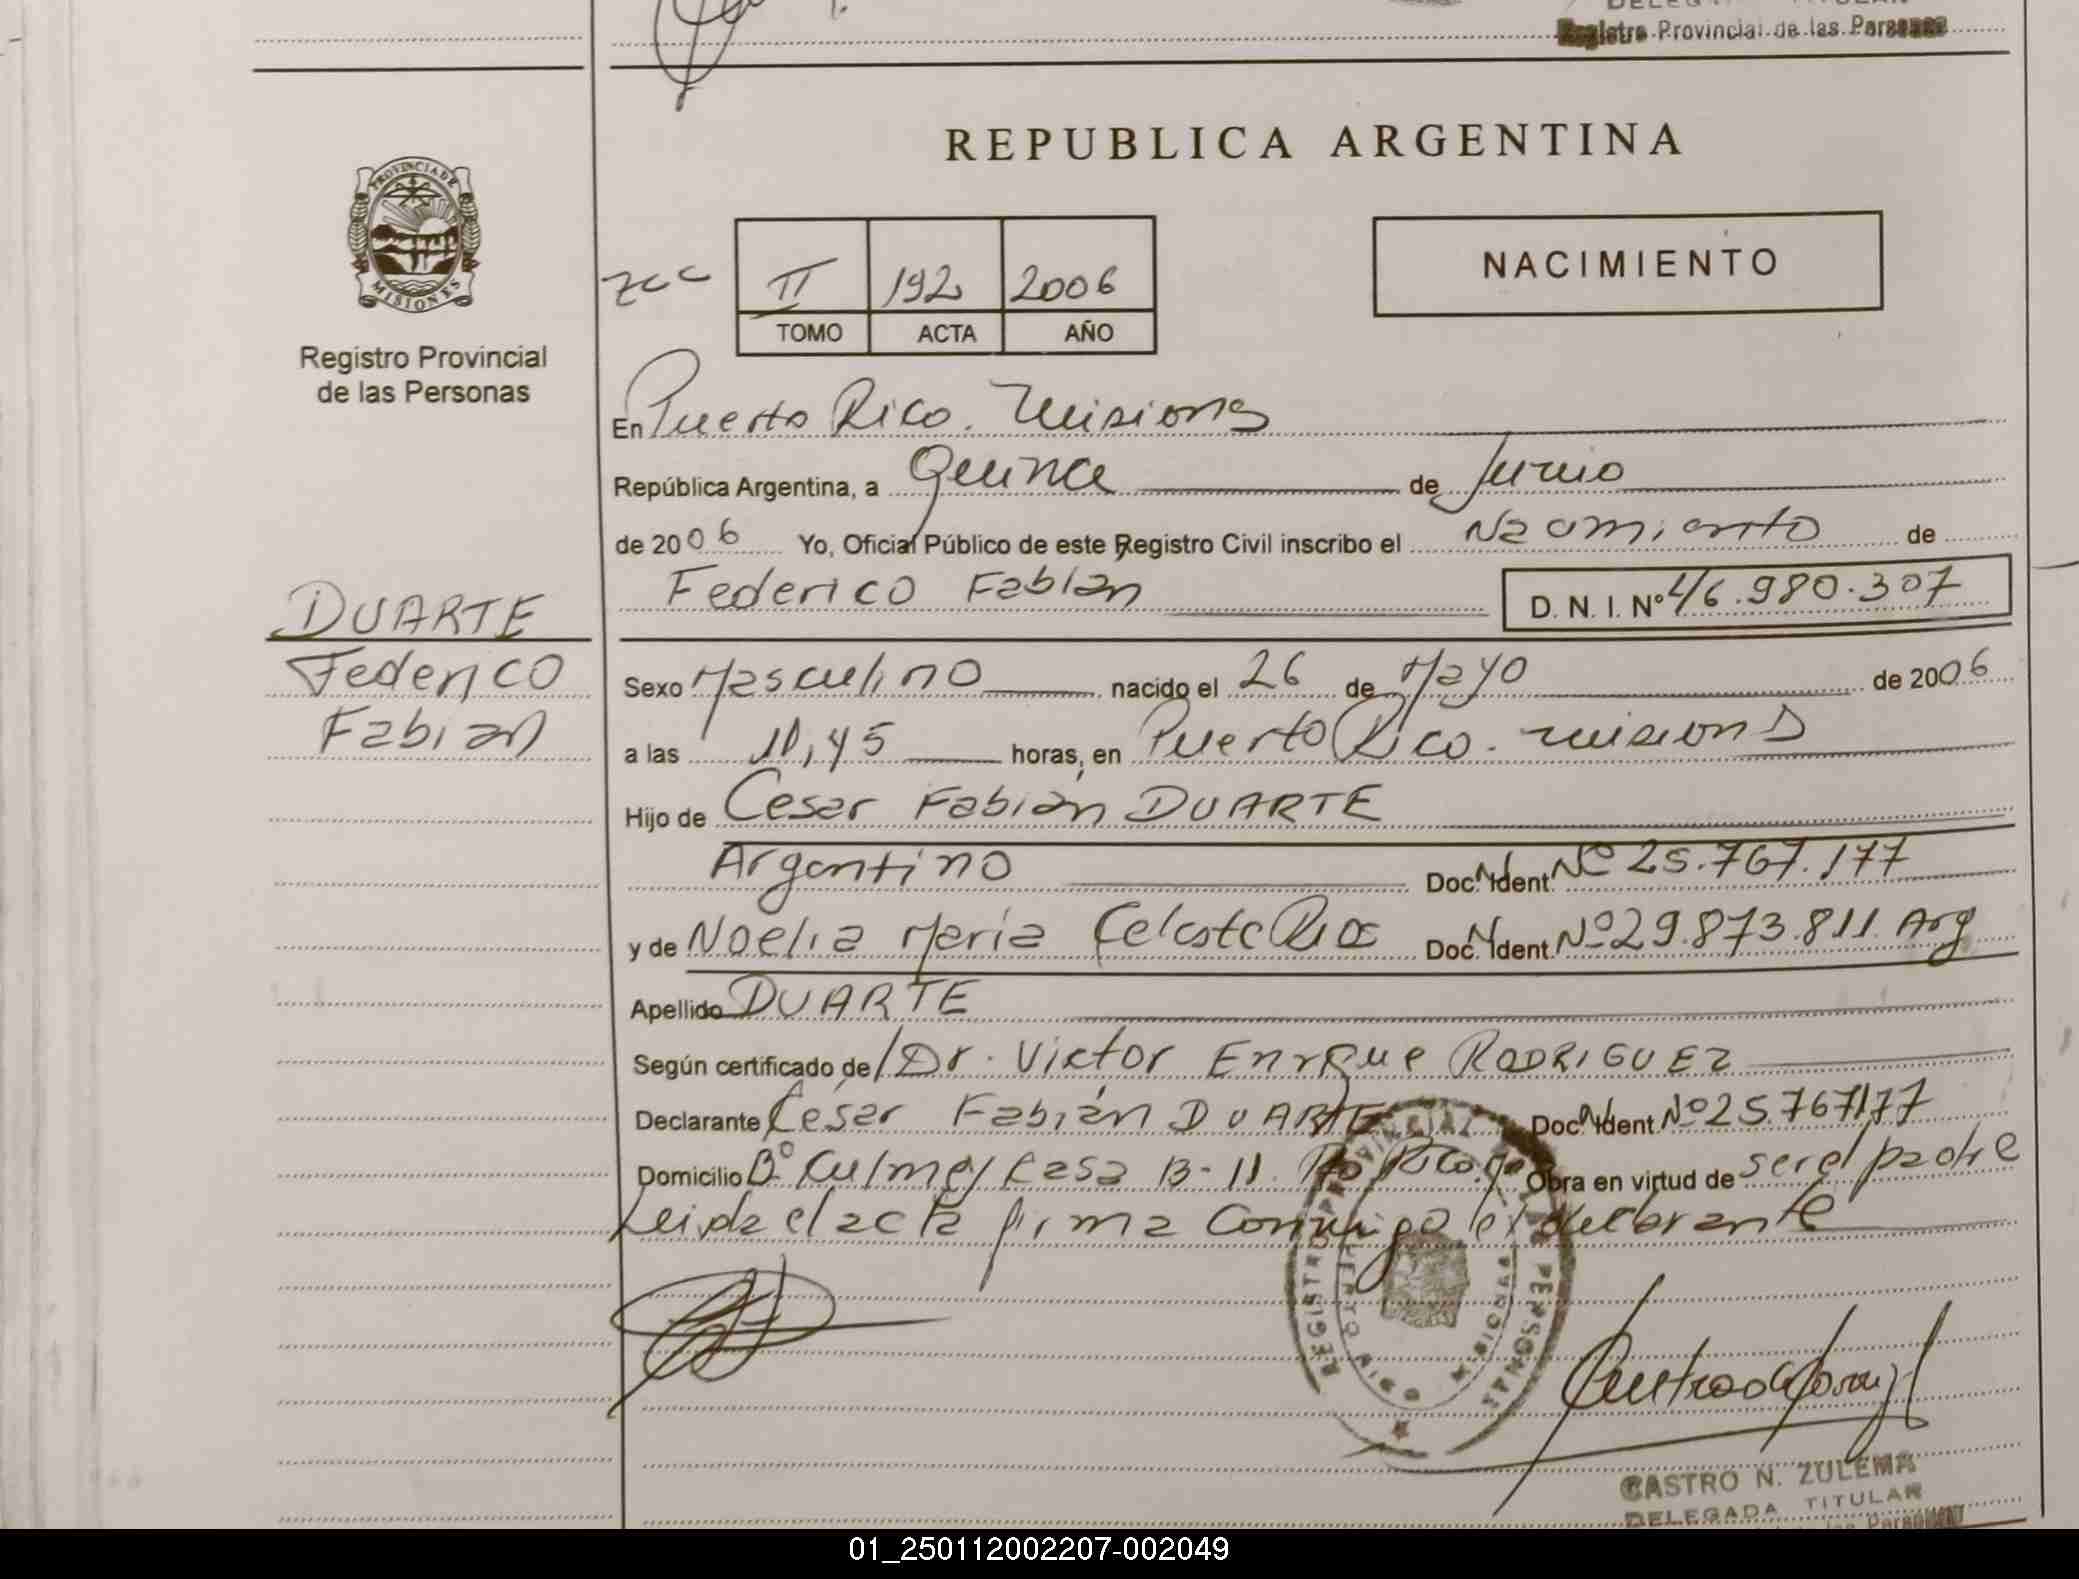 DELEGADA TITULAR
Registro Provincial de las Personas
REPUBLICA ARGENTINA
PROVINCIA DE
MISIONES
Registro Provincial
de las Personas
II 192 2006
TOMO ACTA AÑO
NACIMIENTO
En Puerto Rico. Misiones
República Argentina, a Quince de Junio
de 2006 Yo, Oficial Público de este Registro Civil inscribo el Nacimiento de
Federico Fabian D. N. I. Nº 46.980.307
DUARTE
Federico
Fabian
Sexo Masculino nacido el 26 de Mayo de 2006
a las 11,45 horas, en Puerto Rico. Misiones
Hijo de Cesar Fabian DUARTE
Argentino Doc. Ident. Nº 25.767.177
y de Noelia Maria Celeste Rios Doc. Ident. Nº 29.873.811. Arg
Apellido DUARTE
Según certificado de Dr. Victor Enrique RODRIGUEZ
Declarante César Fabián DUARTE Doc. Ident. Nº 25.767177
Domicilio Bº Culmey Casa 13-11. Pto Rico. Obra en virtud de ser el padre
Leida el acta firma conmigo el declarante
REGISTRO PROVINCIAL DE LAS PERSONAS
PUERTO RICO MISIONES
CASTRO N. ZULEMA
DELEGADA TITULAR
de las Personas
01_250112002207-002049